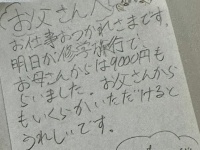 お父さんへ
お仕事おつかれさまです。
明日から修学旅行で、
お母さんからは9000円も
らいました。お父さんから
もいくらかいただけると
うれしいです。